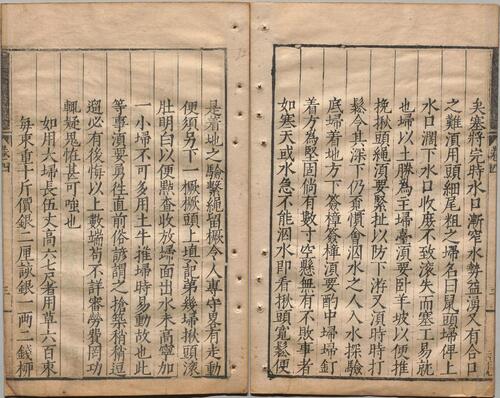 矣塞將完時水口漸窄水勢益湧又有合口
之難須用頭細尾粗之埽名曰鼠頭埽俾上
水口濶下水口收庶不致滾失而塞工易就
也埽以土勝為主埽臺須要卧羊坡以便推
挽揪頭繩須要緊扯以防下游又須時時打
鬆令其深下仍覔慣會泅水之人入水探驗
底埽着地方下簽樁簽樁須要酌中埽埽釘
着方為堅固倘有數寸空懸無有不敗事者
如寒天或水急不能泅水即看揪頭寬鬆便
是着地之驗繫繩留橛令人專守畧有走動
便須另下一橛橛頭上填記第幾埽揪頭滾
肚明白以便點查收放埽面出水未高寧加
一小埽不可多用土牛推埽時易動故也此
等事須要勇往直前俗諺謂之搶築稍稍逗
遛必有後悔以上數端苟不詳審勞費罔功
輒疑鬼怪甚可嗤也
如用大埽長伍丈高六七尺者用草六百束
每束重十斤價銀二厘該銀一兩二錢柳
卷四